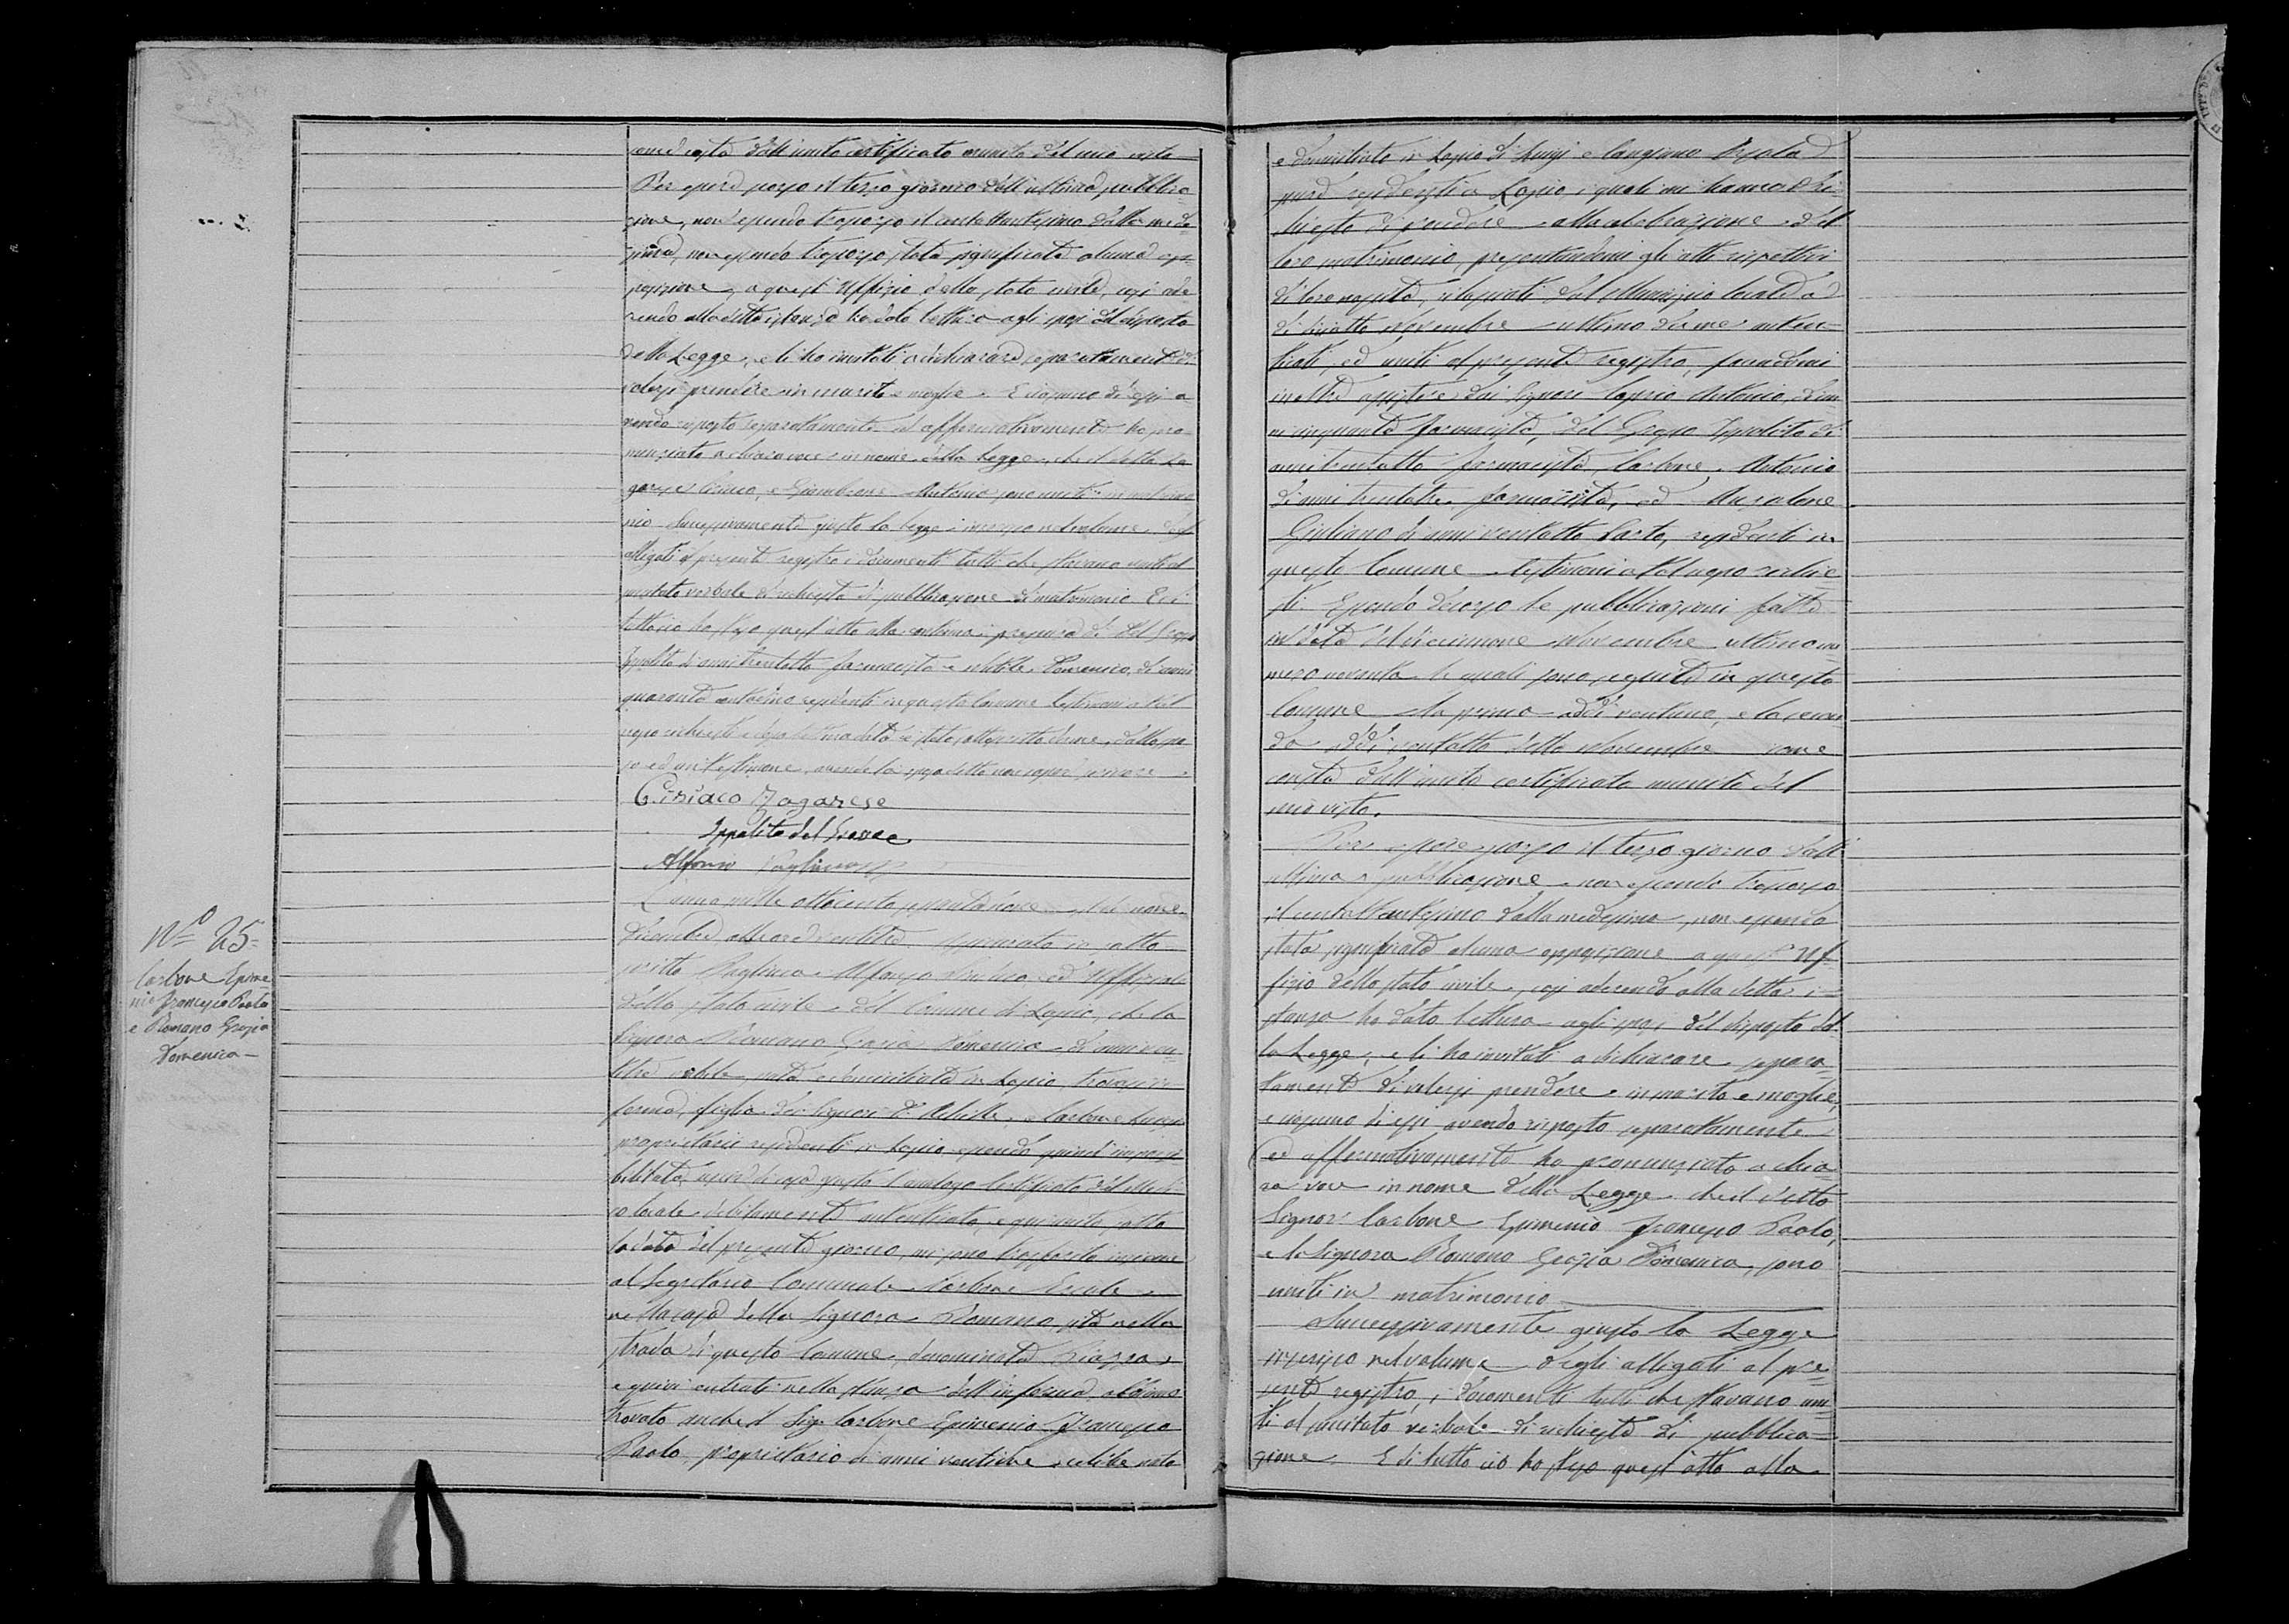 come costa dall'unito certificato munito del mio visto
Per essere scorso il terzo giorno dell'ultima pubblica-
zione, non essendo trascorso il centottantesimo dalla mede-
sima, non essendo trascorso stata significata alcuna op-
posizione a quest'Uffizio dello stato civile, così ade-
rendo alla detta istanza ho dato lettura agli sposi del disposto
della Legge, e li ho invitati a dichiarare separatamente di
volersi prendere in marito e moglie. E ciascuno di essi a-
vendo risposto separatamente ed affermativamente ho pro-
nunziato a chiara voce in nome della Legge, che il detto Za
garese Ciriaco, e Antonia sono uniti in matrimo
nio Successivamente giusta la legge inserisco nel volume degli
allegati al presente registro i documenti tutti che stavano uniti al
verbale di richiesta di pubblicazione di matrimonio E di
tutto ciò ho steso quest'atto alla continua presenza di Del Grosso
Ippolito di anni trentotto farmacista e Domenico, di anni
quaranta contadino residenti in questo Comune testimoni a tal
uopo richiesti e dopo lettura data è stato sottoscritto da me, dallo spo
so ed un testimone, avendo la sposa detto non saper scrivere
Ciriaco Zagarese
Ippolito del Grosso
Alfonso
L'anno mille ottocento settantanove il dì nove
Dicembre alle ore ventitre
scritto Alfonso Sindaco, ed Uffiziale
dello stato civile del Comune di Lapio, che la
Signora Romano Grazia Domenica di anni ven
titre nubile nata e domiciliata in Lapio, trovasi in
ferma, figlia dei Signori D. Achille, e Carbone
proprietarii residenti in Lapio essendo quindi impossi
bilitata, uscire di casa giusta l'analogo Certificato del Medi
co locale debitamente autenticato, e qui unito, sotto
la data del presente giorno, mi sono trasferito insieme
al Segretario Comunale Carbone
nella casa della Signora Romano sita nella
strada di questo Comune, denominata Piazza
e quivi entrati nella stanza dell'inferma abbiamo
trovato anche il Sig. Carbone Epimenio Francesco
Paolo proprietario di anni celibe nato
Nº 25=
Carbone Epime
nio Francesco Paolo
e Romano Grazia
Domenica –
e domiciliato in Lapio di Luigi e
pure residenti a Lapio, i quali mi hanno ri-
chiesto di procedere alla celebrazione del
loro matrimonio, presentandomi gli atti rispettivi
di loro nascita, rilasciati dal Municipio locale a
di diciotto Novembre ultimo da me auten-
ticati, ed uniti al presente registro, facendomi
inoltre assistere dai Signori Antonio, di an
ni cinquanta farmacista, Del Grosso Ippolito di
anni trentotto farmacista, Carbone Antonio
di anni trentatre farmacista, ed
Giuliano di anni ventotto Sarto, residenti in
questo Comune testimoni a tal uopo richie
sti. Essendo decorso le pubblicazioni fatte
in data del diecinnove Novembre ultimo nu
mero novanta le quali sono seguite in questo
Comune la prima addì ventuno, e la secon
da addì ventotto detto Novembre come
costa dall'unito certificato munito del
mio visto.
Per essere scorso il terzo giorno dall'
ultima pubblicazione non essendo trascorso
il centottantesimo dalla medesima, non essendo
stata significata alcuna opposizione a quest'Uf-
fizio dello stato civile, così aderendo alla detta i-
stanza ho dato lettura agli sposi del disposto del
la Legge, e li ho invitati a dichiarare separa
tamente di volersi prendere in marito e moglie,
e ciascuno di essi avendo risposto separatamente
ed affermativamente ho pronunziato a chia
ra voce in nome della Legge che il detto
Signor Carbone Epimenio Francesco Paolo,
e la Signora Romano Grazia Domenica, sono
uniti in matrimonio
Successivamente giusto la Legge
inserisco nel volume degli allegati al pre
sente registro, i documenti tutti che stavano uni
ti al succitato verbale di richiesta di pubblica-
zione E di tutto ciò ho steso quest'atto alla